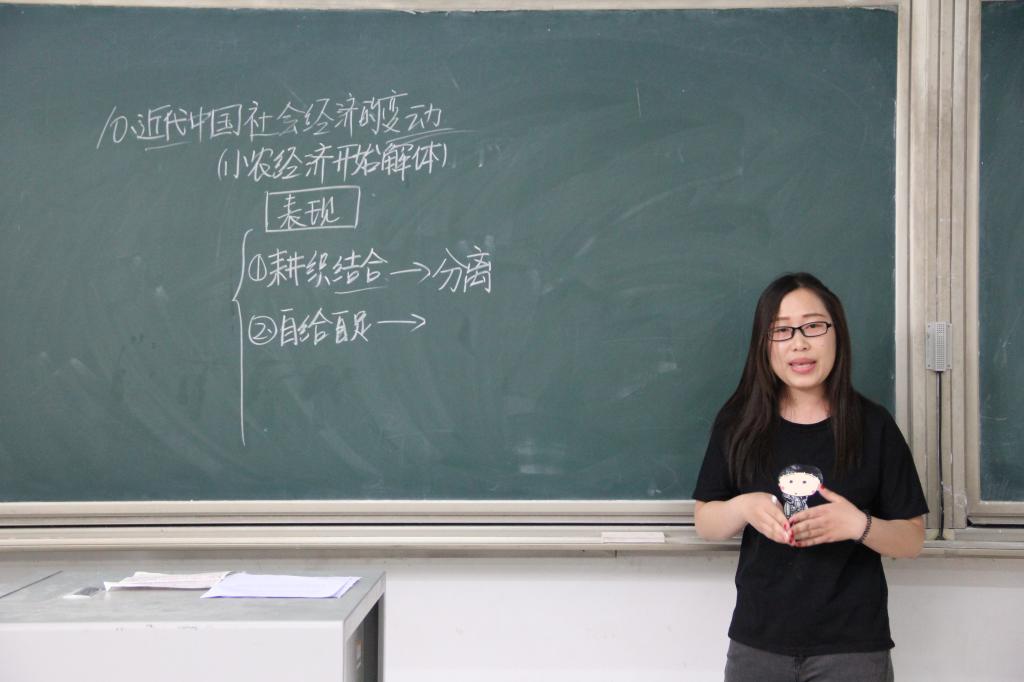 10、近代中国社会经济的变动
(小农经济开始解体)
表现
①耕织结合→分离
②自给自足→